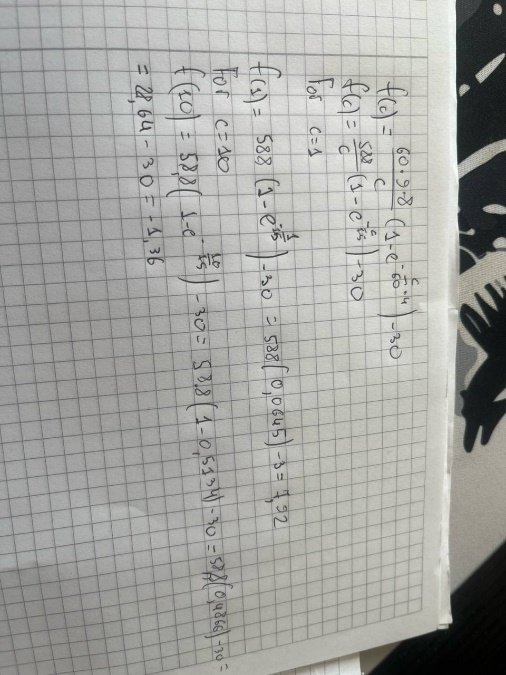 f(c) = 60·9.8/c (1-e^-c/60·4) -30
f(c) = 588/c (1-e^-c/15) -30
For c=1
f(1) = 588 (1-e^-1/15) -30 = 588(0,0645) -3 = 7,92
For c=10
f(10) = 58,8(1-e^-10/15) -30 = 58,8(1-0,5134) -30 = 58,8(0,4866) -30 =
= 28,64-30 = -1,36